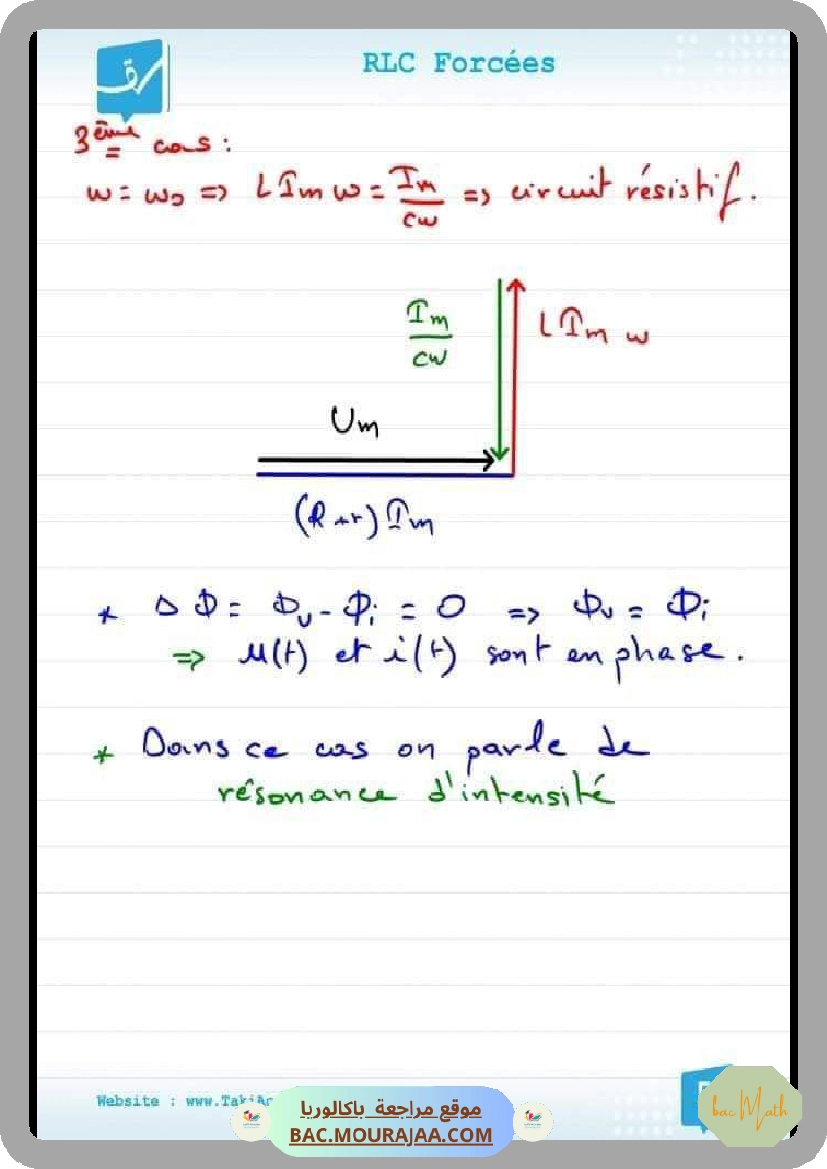 RLC Forcées
3ème cas :
w = w₀ => L Im w = Im/cw => circuit résistif.
Im/cw
L Im w
Um
(R+r) Im
* Δ Φ = Φu - Φi = 0 => Φu = Φi
=> u(t) et i(t) sont en phase.
* Dans ce cas on parle de
résonance d'intensité
Website : www.Taki
موقع مراجعة باكالوريا
BAC.MOURAJAA.COM
bac Math